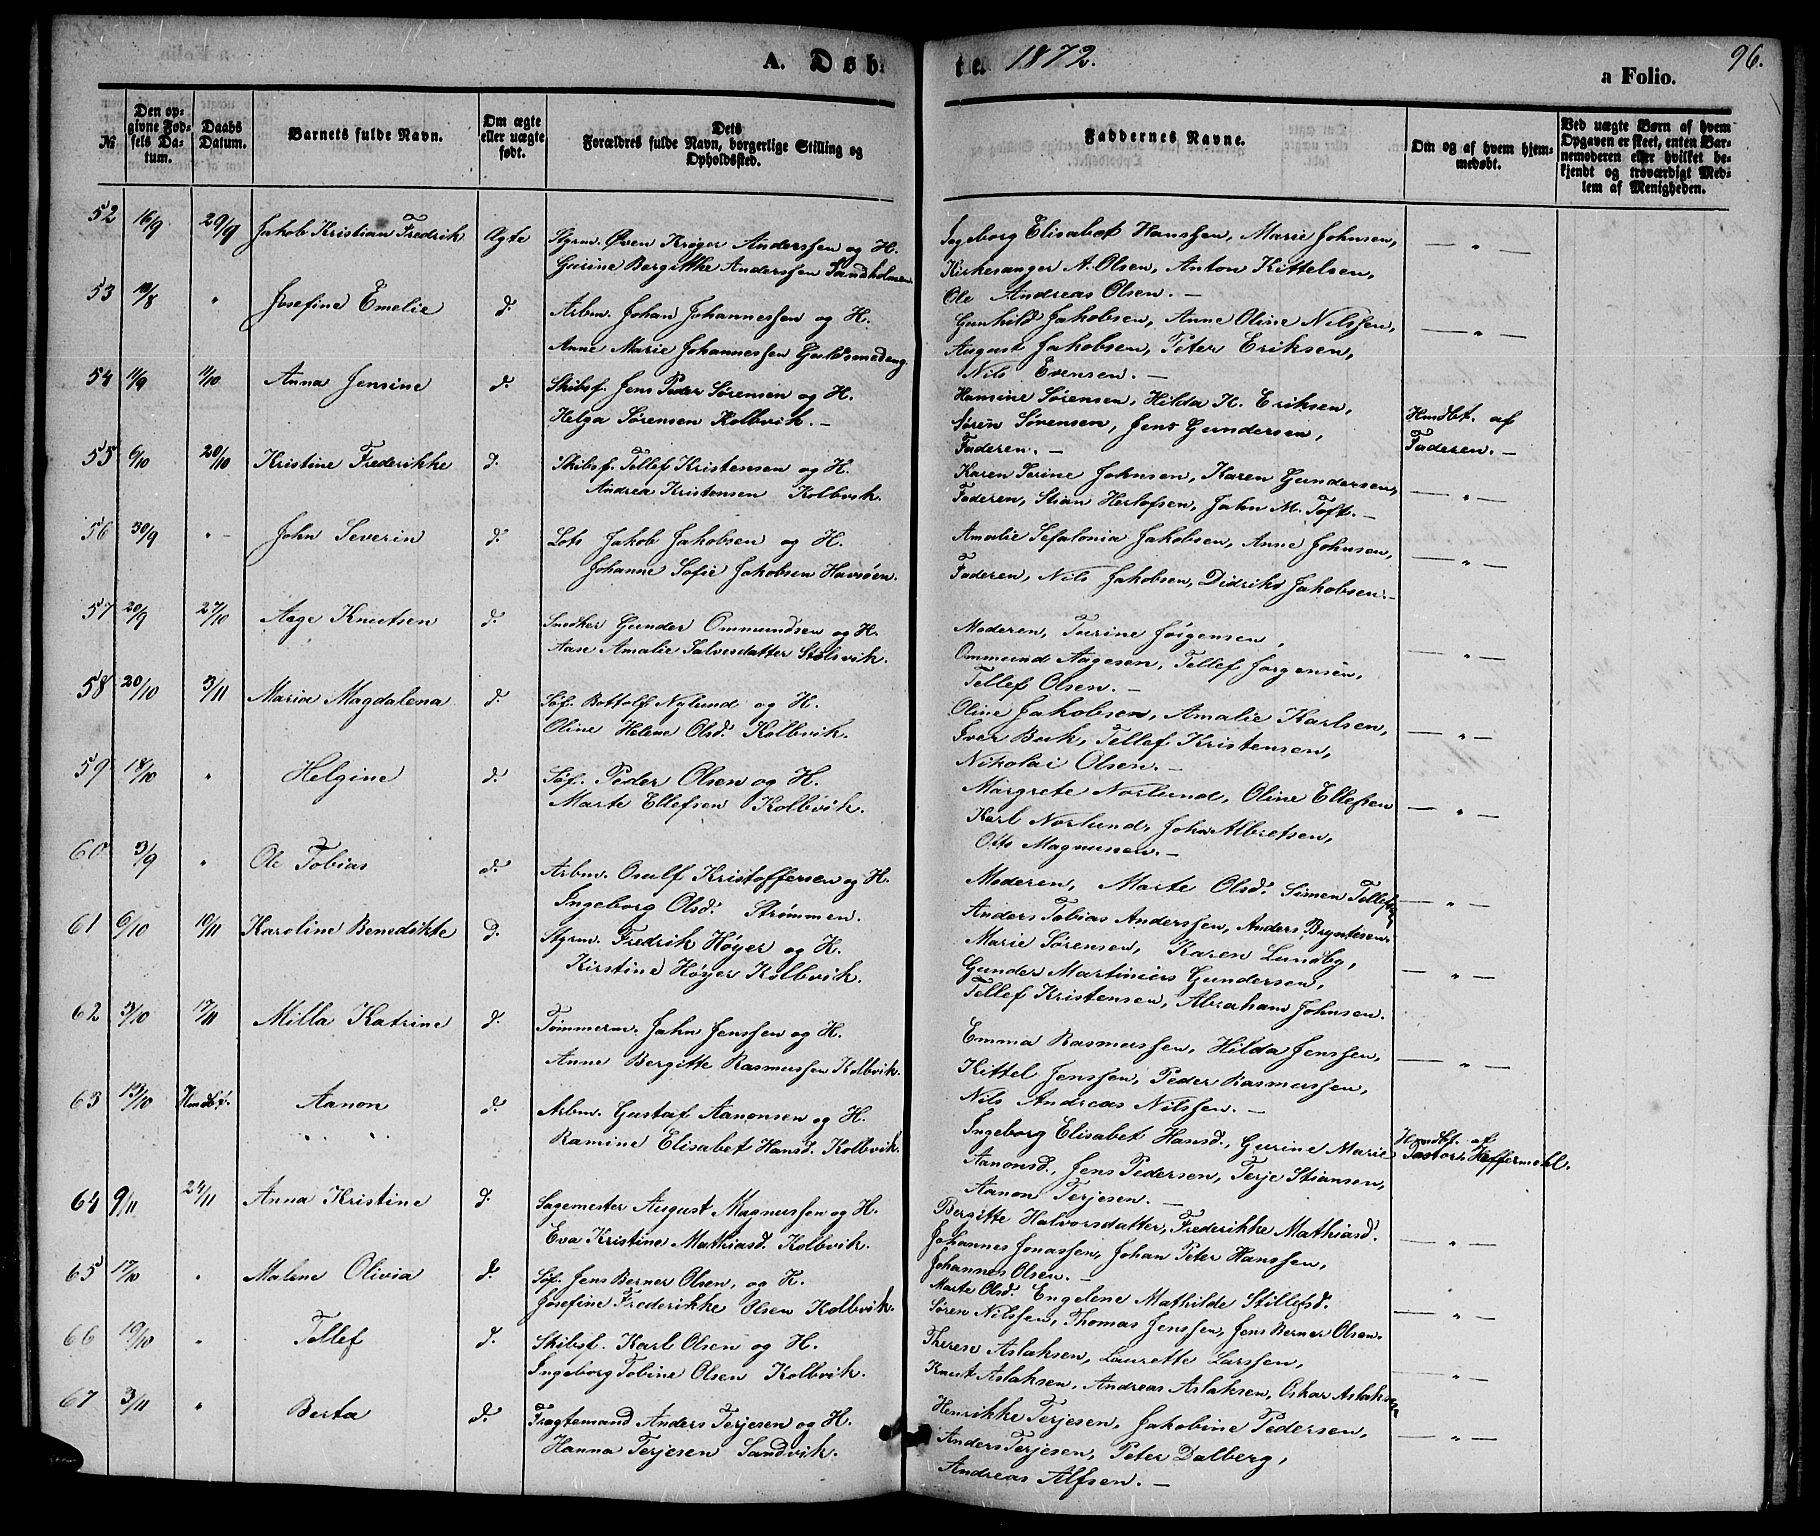 A. Døb-
te. 1872.
96.
a Folio.
№
Den op-
givne Fød-
sels Da-
tum.
Daabs
Datum.
Barnets fulde Navn.
Om ægte
eller uægte
født.
Dets
Forældres fulde Navn, borgerlige Stilling og
Opholdssted.
Faddernes Navne.
Om og af hvem hjem-
medøbt.
Ved uægte Børn af hvem
Opgaven er skeet, enten Bar-
nemoderen eller hvilket be-
kjendt og troværdigt Med-
lem af Menigheden.
52 16/9 29/9 Jakob Kristian Fredrik Ægte Styrm. Øven Krøger Anderssen og H.
Gurine Bergitthe Anderssen Sandholmen
Ingeborg Elisabet Hanssen, Marie Johnsen, — " —
Kirkesanger A. Olsen, Anton Kittelsen,
Ole Andreas Olsen. —
53 /8 " Josefine Emelie d. Arbm. Johan Johannessen og H.
Anne Marie Johannessen Guldsmedeng.
Gunhild Jakobsen, Anne Oline Nilssen, — " —
August Jakobsen, Peter Eriksen,
Nils Evensen. —
54 11/9 /10 Anna Jensine d. Skibsf. Jens Peder Sørensen og H.
Helga Sørensen Kolbvik. —
Hansine Sørensen, Hilda K. Eriksen, Hmdbt. af
Søren Sørensen, Jens Gundersen, Faderen. —
Faderen. —
55 6/10 20/10 Kristine Frederikke d. Skibsf. Tellef Kristensen og H.
Andrea Kristensen Kolbvik.
Karen Serine Johnsen, Karen Gundersen, — " —
Faderen, Stian Herlofsen, John M. Toft. —
56 30/9 " — John Severin d. Lots Jakob Jakobsen og H.
Johanne Sofie Jakobsen Havsøen.
Amalie Sefalonia Jakobsen, Anne Johnsen, — " —
Faderen, Nils Jakobsen, Didriks Jakobsen. —
57 20/9 27/10 Aage Knutsen d. Snedker Gunder Ommundsen og H.
Aase Amalie Salvesdatter Stølsvik.
Moderen, Turine Jørgensen, — " —
Ommund Aagesen, Tellef Jørgensen,
Tellef Olsen. —
58 20/10 3/11 Maria Magdalena d. Søf. Bottolf Nylund og H.
Oline Helene Olsd. Kolbvik.
Oline Jakobsen, Amalie Karlsen, — " —
Iver Bork, Tellef Kristensen,
Nikolai Olsen. —
59 18/10 " Helgine d. Søf. Peder Olsen og H.
Marte Ellefsen Kolbvik.
Margrete Norlund, Oline Ellefsen — " —
Karl Norlund, John Albretsen,
Otto Magnussen. —
60 3/9 " Ole Tobias d. Arbm. Osulf Kristoffersen og H.
Ingeborg Olsd. Strømmen.
Moderen, Marte Olsd. Simen Tellefsen — " —
Anders Tobias Anderssen, Anders Bryntesen.
61 6/10 10/11 Karoline Benedikte d. Styrm. Fredrik Høyer og H.
Kirstine Høyer Kolbvik.
Marie Sørensen, Karen Lundby, — " —
Gunder Martinius Gundersen,
Tellef Kristensen, Abraham Johnsen.
62 3/10 17/11 Milla Katrine d. Tømmerm. John Jenssen og H.
Anne Bergitte Rasmussen Kolbvik.
Emma Rasmussen, Hilda Jenssen, — " —
Kittel Jenssen, Peder Rasmussen,
Nils Andreas Nilssen. —
63 13/10 Hmdbt. Aanon d. Arbm. Gustaf Aanonsen og H.
" " " Ramine Elisabet Hansd. Kolbvik.
Ingeborg Elisabet Hansd., Gurine Marie Hmdbt. af
Aanonsd., Jens Pedersen, Terje Stiansen, Pastor Heffermehl.
Aanon Terjesen. —
64 9/11 24/11 Anna Kristine d. Sagemester August Magnussen og H.
Eva Kristine Mathiasd. Kolbvik.
Bergitte Halvorsdatter, Frederikke Mathiasd. — " —
Johannes Jonassen, Johan Peter Hanssen,
Johannes Olsen. —
65 17/10 " Malene Olivia d. Søf. Jens Berner Olsen, og H.
Josefine Frederikke Olsen Kolbvik.
Marte Olsd. Engelene Mathilde Stillefsd. — " —
Søren Nilssen, Thomas Jenssen, Jens Berner Olsen.
66 19/10 " Tellef d. Skibst. Karl Olsen og H.
Ingeborg Tobine Olsen Kolbvik.
Therese Aslaksen, Laurette Larssen, — " —
Knut Aslaksen, Andreas Aslaksen, Oskar Aslaksen
67 3/11 " Berta d. Fragtemand Anders Terjesen og H.
Hanna Terjesen Sandvik.
Henrikke Terjesen, Jakobine Pedersen, — " —
Anders Terjesen, Peter Dalberg,
Andreas Alfsen. —